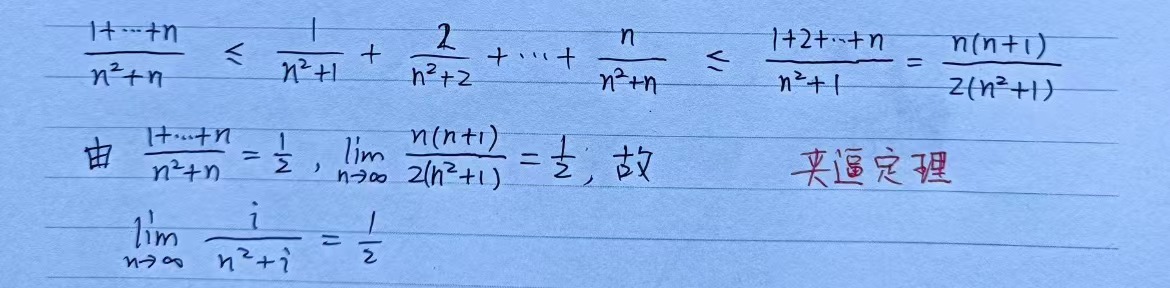 \frac{1+\cdots+n}{n^2+n} \leq \frac{1}{n^2+1} + \frac{2}{n^2+2} + \cdots + \frac{n}{n^2+n} \leq \frac{1+2+\cdots+n}{n^2+1} = \frac{n(n+1)}{2(n^2+1)}
由 \frac{1+\cdots+n}{n^2+n} = \frac{1}{2}, \lim_{n \to \infty} \frac{n(n+1)}{2(n^2+1)} = \frac{1}{2}, 故 夹逼定理
\lim_{n \to \infty} \frac{i}{n^2+i} = \frac{1}{2}